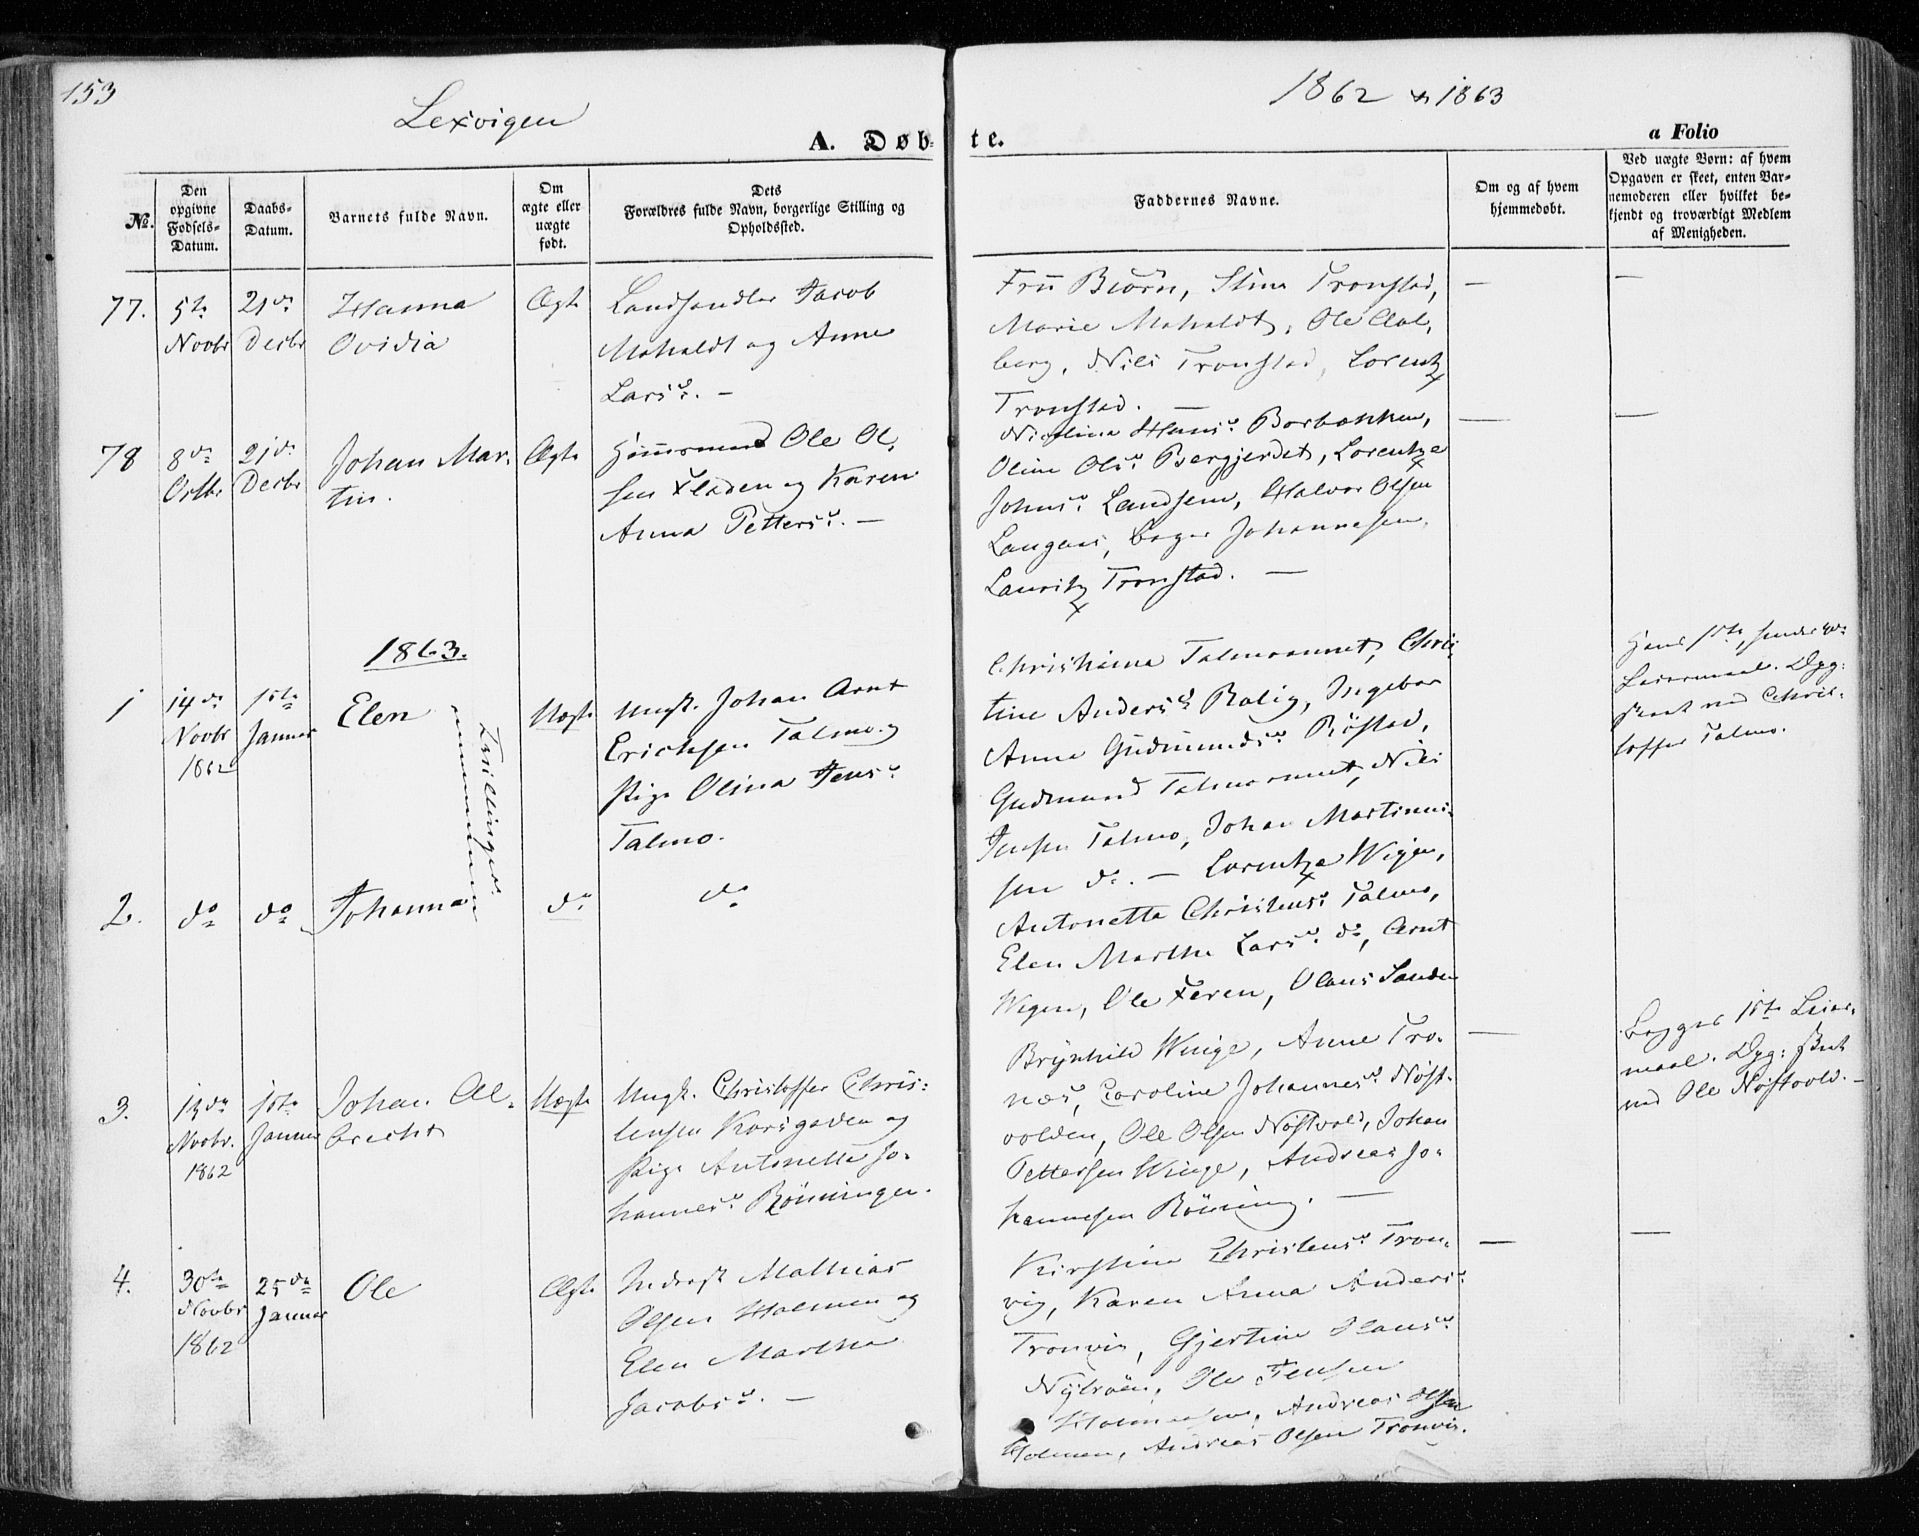 153
Lexvigen
1862 & 1863
A. Døbte.
a Folio
No.
Den opgivne Fødsels-Datum.
Daabs-Datum.
Barnets fulde Navn.
Om ægte eller uægte født.
Dets Forældres fulde Navn, borgerlige Stilling og Opholdssted.
Faddernes Navne.
Om og af hvem hjemmedøbt.
Ved uægte Børn: af hvem Opgaven er skeet, enten Barnemoderen eller hvilket bekjendt og troværdigt Medlem af Menigheden.
77.
5te
Novbr
21de
Decbr
Hanna
Ovidia
Ægte
Landhandler Jacob
og Anne
Larsd. —
Fru Biørn, Stina Tronstad,
Marie, Ole Aal,
berg, Nils Tronstad, Lorentz
Tronstad. —
78
8de
Octbr
21de
Decbr
Johan Mar-
tin.
Ægte
Huusmand Ole Ol,
sen Fladen og Karen
Anna Pettersd. —
Nicolina Hansd. Borbakken,
Oline Olsd. Bergjerdet, Lorentze
Johnsd. Landsem, Halvor Olsen
Johannesen,
Lauritz Tronstad. —
1863.
1
14de
Novbr
1862
1ste
Januar
Elen
Trillinger.
Uægte
Ungk. Johan Arnt
Ericksen Talmo og
Pige Olina Jensd.
Talmo.
Christiana Talmoaunet, Chris-
tine Andersd. Ralig, Ingebor
Anna Gudmundsd. Røstad,
Gudmund Talmoaunet, Nils
Jensen Talmo, Johan Martinus-
sen do. — Lorentze Wigen,
Antonetta Christensd. Talmo,
Elen Martha Larsd. do, Arnt
Wigen, Ole Feren, Olaus Sanden
Hans 1ste, hendes 2de
Leiermaal. Opg:
skeet ved Chris-
toffer Talmo.
2.
do
do
Johanna
do
do
3.
13de
Novbr.
1862
1ste
Januar
Johan Al-
brecht
Uægte
Ungk. Christoffer Chris-
tensen Korsgaden og
Pige Antonetta Jo-
hannesd. Rönningen.
Brynhild Winge, Anne Tro-
næs, Caroline Johannesd. Nöst-
volden, Ole Olsen Nöstvold, Johan
Pettersen Winge, Andreas Jo-
hannesen Rönning. —
Begges 1ste Leier-
maal. Opg: skeet
ved Ole Nöstvold. —
4.
30te
Novbr
1862
25de
Januar
Ole
Ægte
Inderst Mathias
Olsen Holmen og
Elen Martha
Jacobsd. —
Kirstine Christensd. Tron-
vig, Karen Anna Andersd.
Tronvig, Gjertine Olausd.
Nytröen, Ole Jensen
Andreas Olsen
Holmen, Andreas Olsen Tronvig.